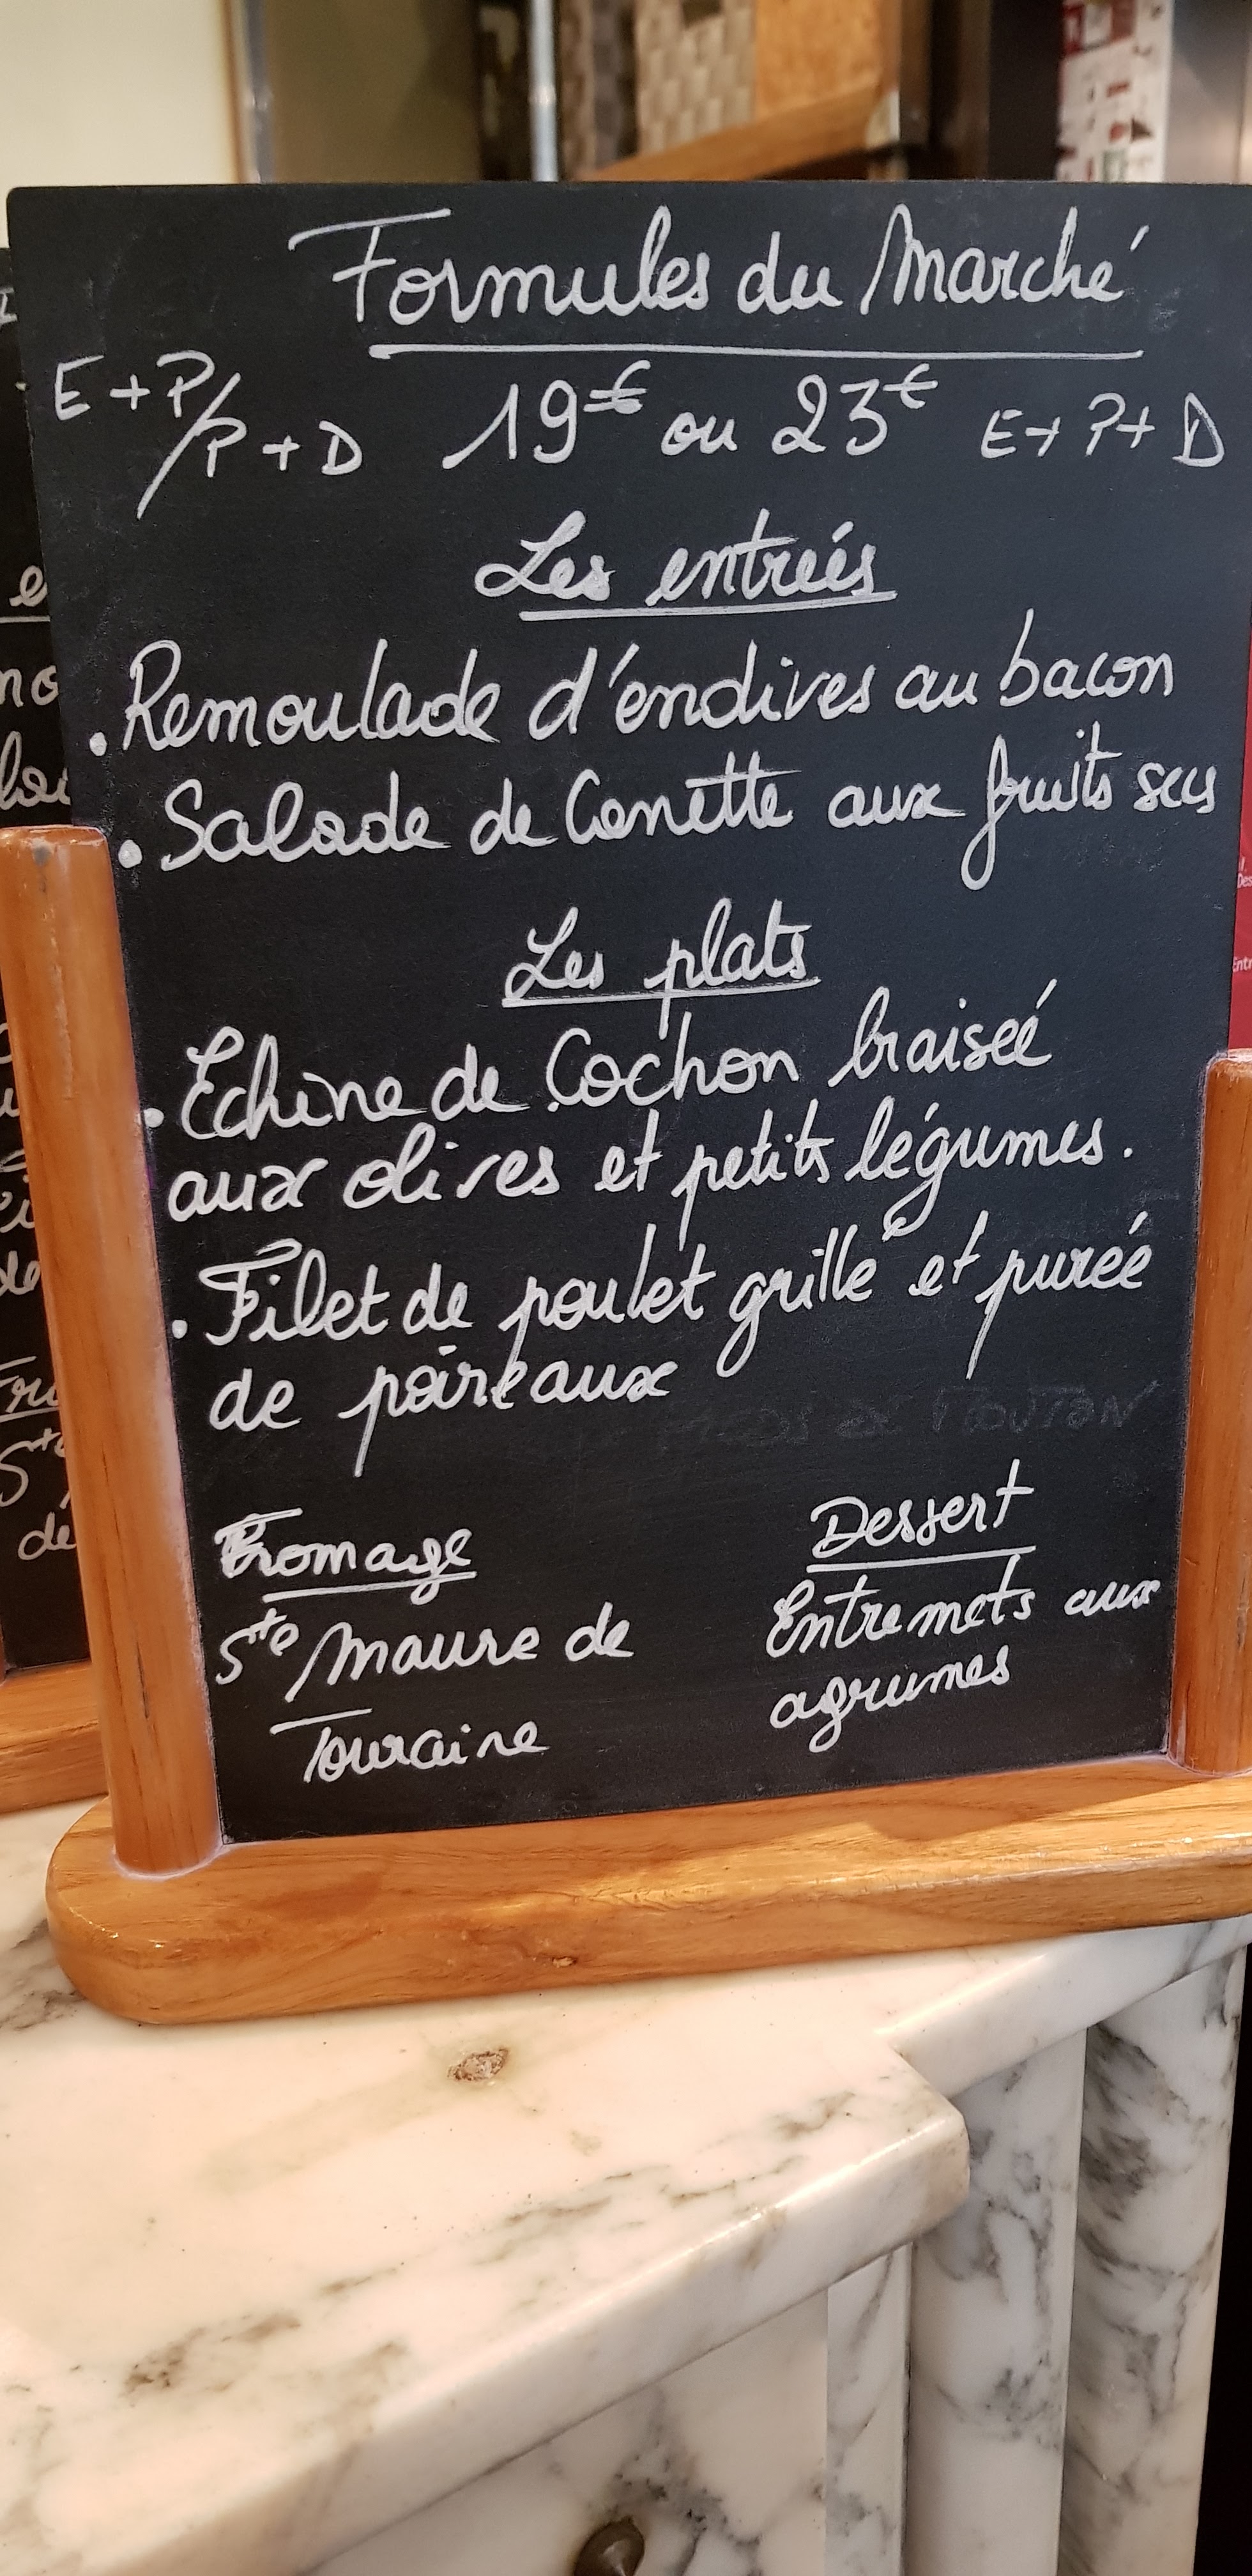 Formules du Marché
E+P/P+D 19€ ou 23€ E+P+D
Les entrées
. Remoulade d'endives au bacon
. Salade de Conette aux fruits secs
Les plats
. Echine de Cochon braisée
aux olives et petits légumes.
. Filet de poulet grillé et purée
de poireaux
Fromage
Ste Maure de
Touraine
Dessert
Entremets aux
agrumes